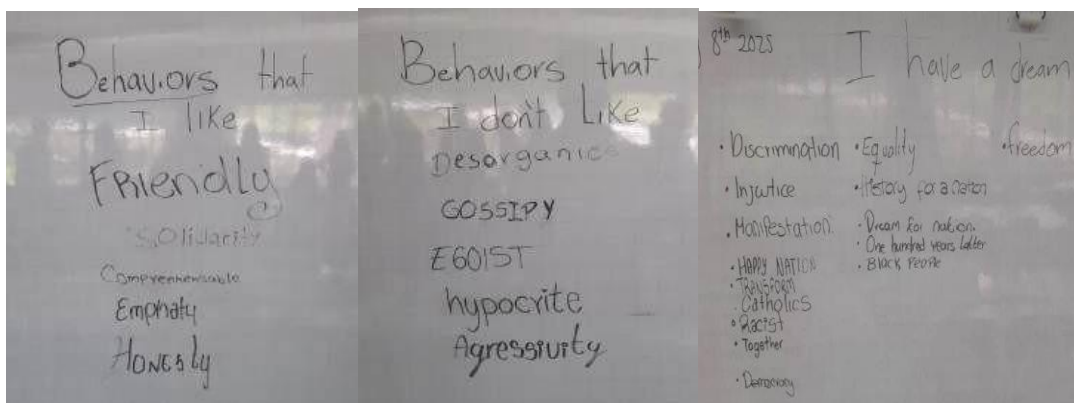 Behaviors that
I like
Friendly
Solidarity
Comprenhensable
Emphaty
Honesty
Behaviors that
I don't Like
Desorganice
GOSSIPY
EGOIST
hypocrite
Agressivity
8th 2025
I have a dream
• Discrimination
• Injuctice
• Manifestation.
• HAPPY NATION
• TRANSFORM
. Catholics
• Racist
• Together
• Democracy
• Equality
• History for a nation
• Dream for nation.
• One hundred years latter
• Black People
• freedom